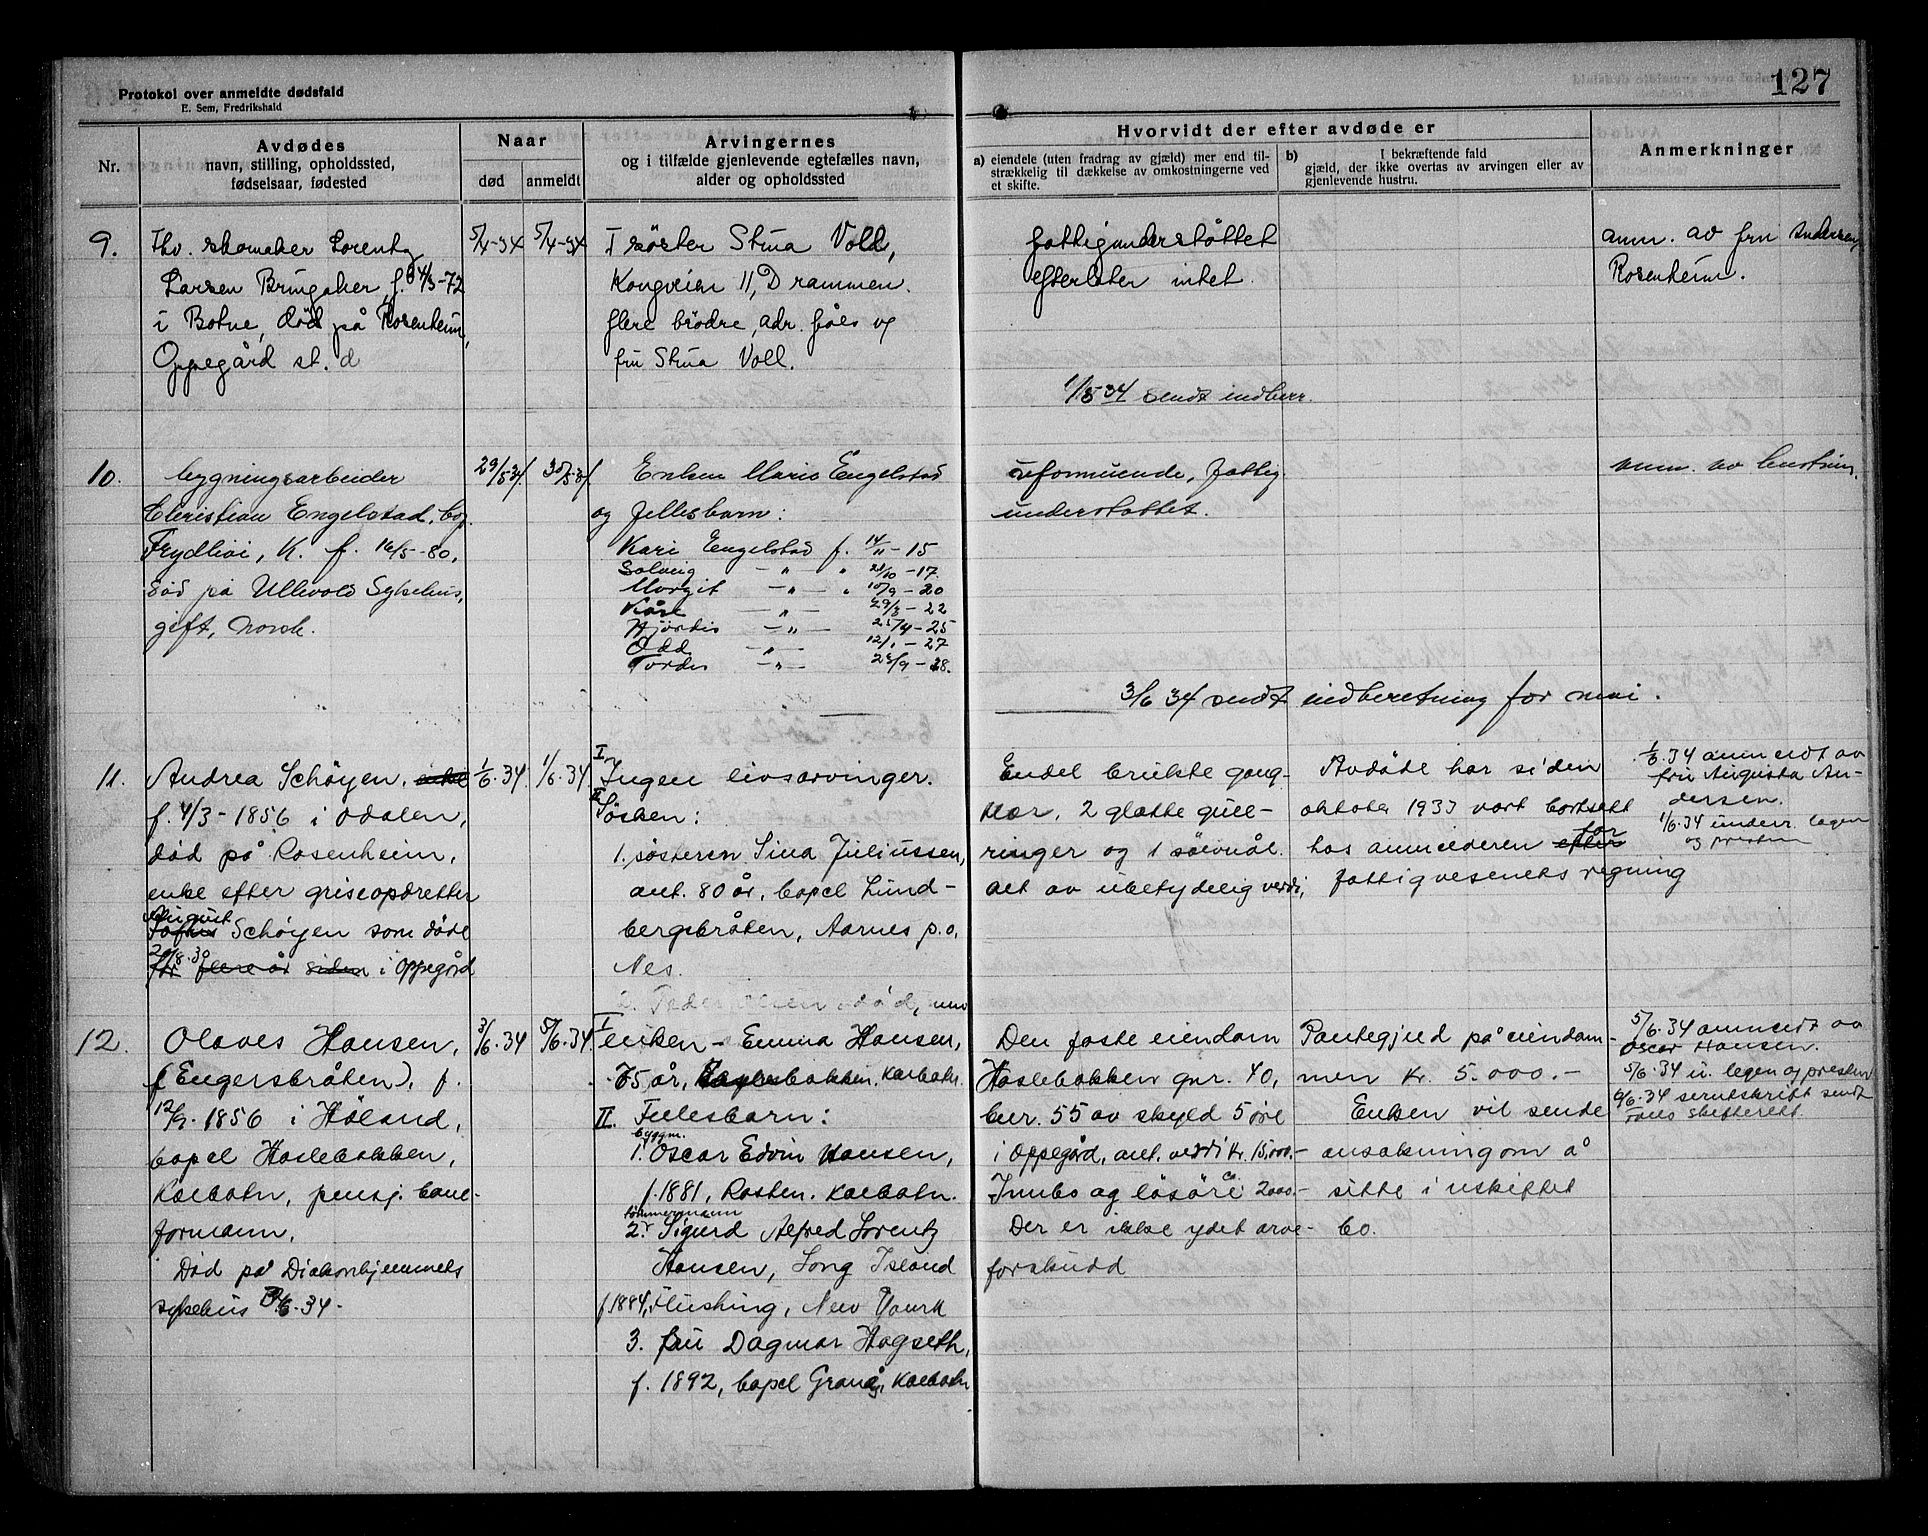 Protokol over anmeldte dødsfald
E. Sem, Fredrikshald
127
Nr.
Avdødes
navn, stilling, opholdssted,
fødselsaar, fødested
Naar
død
anmeldt
Arvingernes
og i tilfælde gjenlevende egtefælles navn,
alder og opholdssted
Hvorvidt der efter avdøde er
a) eiendele (uten fradrag av gjæld) mer end til-
strækkelig til dækkelse av omkostningerne ved
et skifte.
b) I bekræftende fald
gjæld, der ikke overtas av arvingen eller av
gjenlevende hustru.
Anmerkninger
9.
Fhv. skomaker Lorentz
Larsen Bringaker f. 4/3-72
i Botne, død på Rosenheim,
Oppegård st. d
5/4-34
5/4-34
I søster Stina Voll,
Kongveien 11, Drammen.
flere brödre, adr. fåes og
fru Stina Voll.
fattigunderstöttet
efterlater intet.
1/5 34 sendt indberr.
anm. av fru Andersen,
Rosenheim.
10.
bygningsarbeider
Christian Engelstad, bop.
Frydlivi, K. f. 16/5-80,
død på Ullevold Sykehus,
gift, norsk.
29/5-34
30/5-34
Enken Maris Engelstad
og fellesbarn:
Kari Engelstad f. 14/11-15
Solveig - " - " 21/10-17
Margit - " - " 10/9-20
Kåre - " - 29/3-22
Hjördis - " - 25/4-25
Odd - " - 12/1-27
Tordis - " - 28/9-28.
uformuende, fattig
understøttet.
3/6 34 sendt indberetning for mai.
anm. av hustruen.
11.
Andrea Schöyen, enke
f. 4/3-1856 i Odalen,
død på Rosenheim,
enke efter griseopdretter
August
Schöyen som døde
20/8.30
for flere år siden i Oppegård
1/6.34
1/6.34
I Ingen livsarvinger.
II Søsken:
1. søsteren Sina Juliussen,
ant. 80 år, bopel Lund-
bergsbråten, Aarnes p.o.
Nes.
Endel brukte gang-
klær, 2 glatte gull-
ringer og 1 sölvnål.
alt av ubetydelig verdi,
Avdøde har siden
oktober 1933 vært bortsatt
hos anmelderen efter for
fattigvesenets regning
1/6.34 anmeldt av
fru Augusta An-
dersen.
1/6.34 underr. legen
og presten
12.
Olaves Hansen,
(Engersbråten), f.
12/9.1856 i Höland,
bopel Haslebakken,
Kolbotn, pensj. bane-
formann,
Død på Diakonhjemmets
sykehus 3/6.34.
3/6.34
5/6.34.
I enken - Emma Hansen,
75 år, Haslebakken, Kolbotn.
II. Fellesbarn:
byggm.
1. Oscar Edvin Hansen,
f. 1881, Rosten. Kolbotn.
tömmermann
2. Sigurd Alfred Lorentz
Hansen, Long Island
f. 1884, Flushing, New Yourk
3. fru Dagmar Hagseth,
f. 1892, bopel Granås, Kolbotn
Den faste eiendom
Haslebakken gnr. 40,
bnr. 55 av skyld 5 öre
i Oppegård, ant. verdi kr. 15.000.-
Innbo og lösöre ca. 2000.-
Der er ikke ydet arve-
forskudd
Pantegjeld på eiendom-
men kr. 5.000.-
Enken vil sende
ansökning om å
sitte i uskiftet
bo.
5/6.34 anmeldt av
Oscar Hansen.
5/6.34 u. legen og presten
6/6.34 serutskrift sendt
Follo skifterett